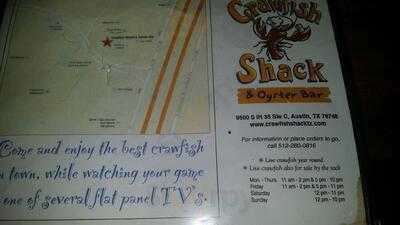 Crawfish
Shack
& Oyster Bar
9500 S IH 35 Ste C, Austin, TX 78748
www.crawfishshacktx.com
For information or place orders to go,
call 512-280-0816
Live crawfish year round
Live crawfish also for sale by the sack
Mon. - Thurs. 11 am - 2 pm & 5 pm - 10 pm
Friday 11 am - 2 pm & 5 pm - 11 pm
Saturday 12 pm - 11 pm
Sunday 12 pm - 10 pm
Come and enjoy the best crawfish
n town, while watching your game
one of several flat panel TV's.